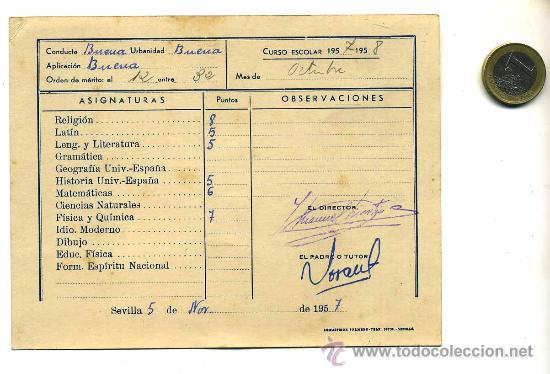 Conducta Buena Urbanidad Buena
Aplicación Buena
Orden de mérito: el 12 entre 32
CURSO ESCOLAR 1957 1958
Mes de Octubre
ASIGNATURAS Puntos OBSERVACIONES
Religión 8
Latín 5
Leng. y Literatura 5
Gramática
Geografía Univ.-España
Historia Univ.-España 5
Matemáticas 6
Ciencias Naturales
Física y Química 7
Idio. Moderno
Dibujo
Educ. Física
Form. Espíritu Nacional
EL DIRECTOR,
EL PADRE O TUTOR
Sevilla 5 de Nov. de 1957
SEVILLA
1
© todocoleccion
www.todocoleccion.net